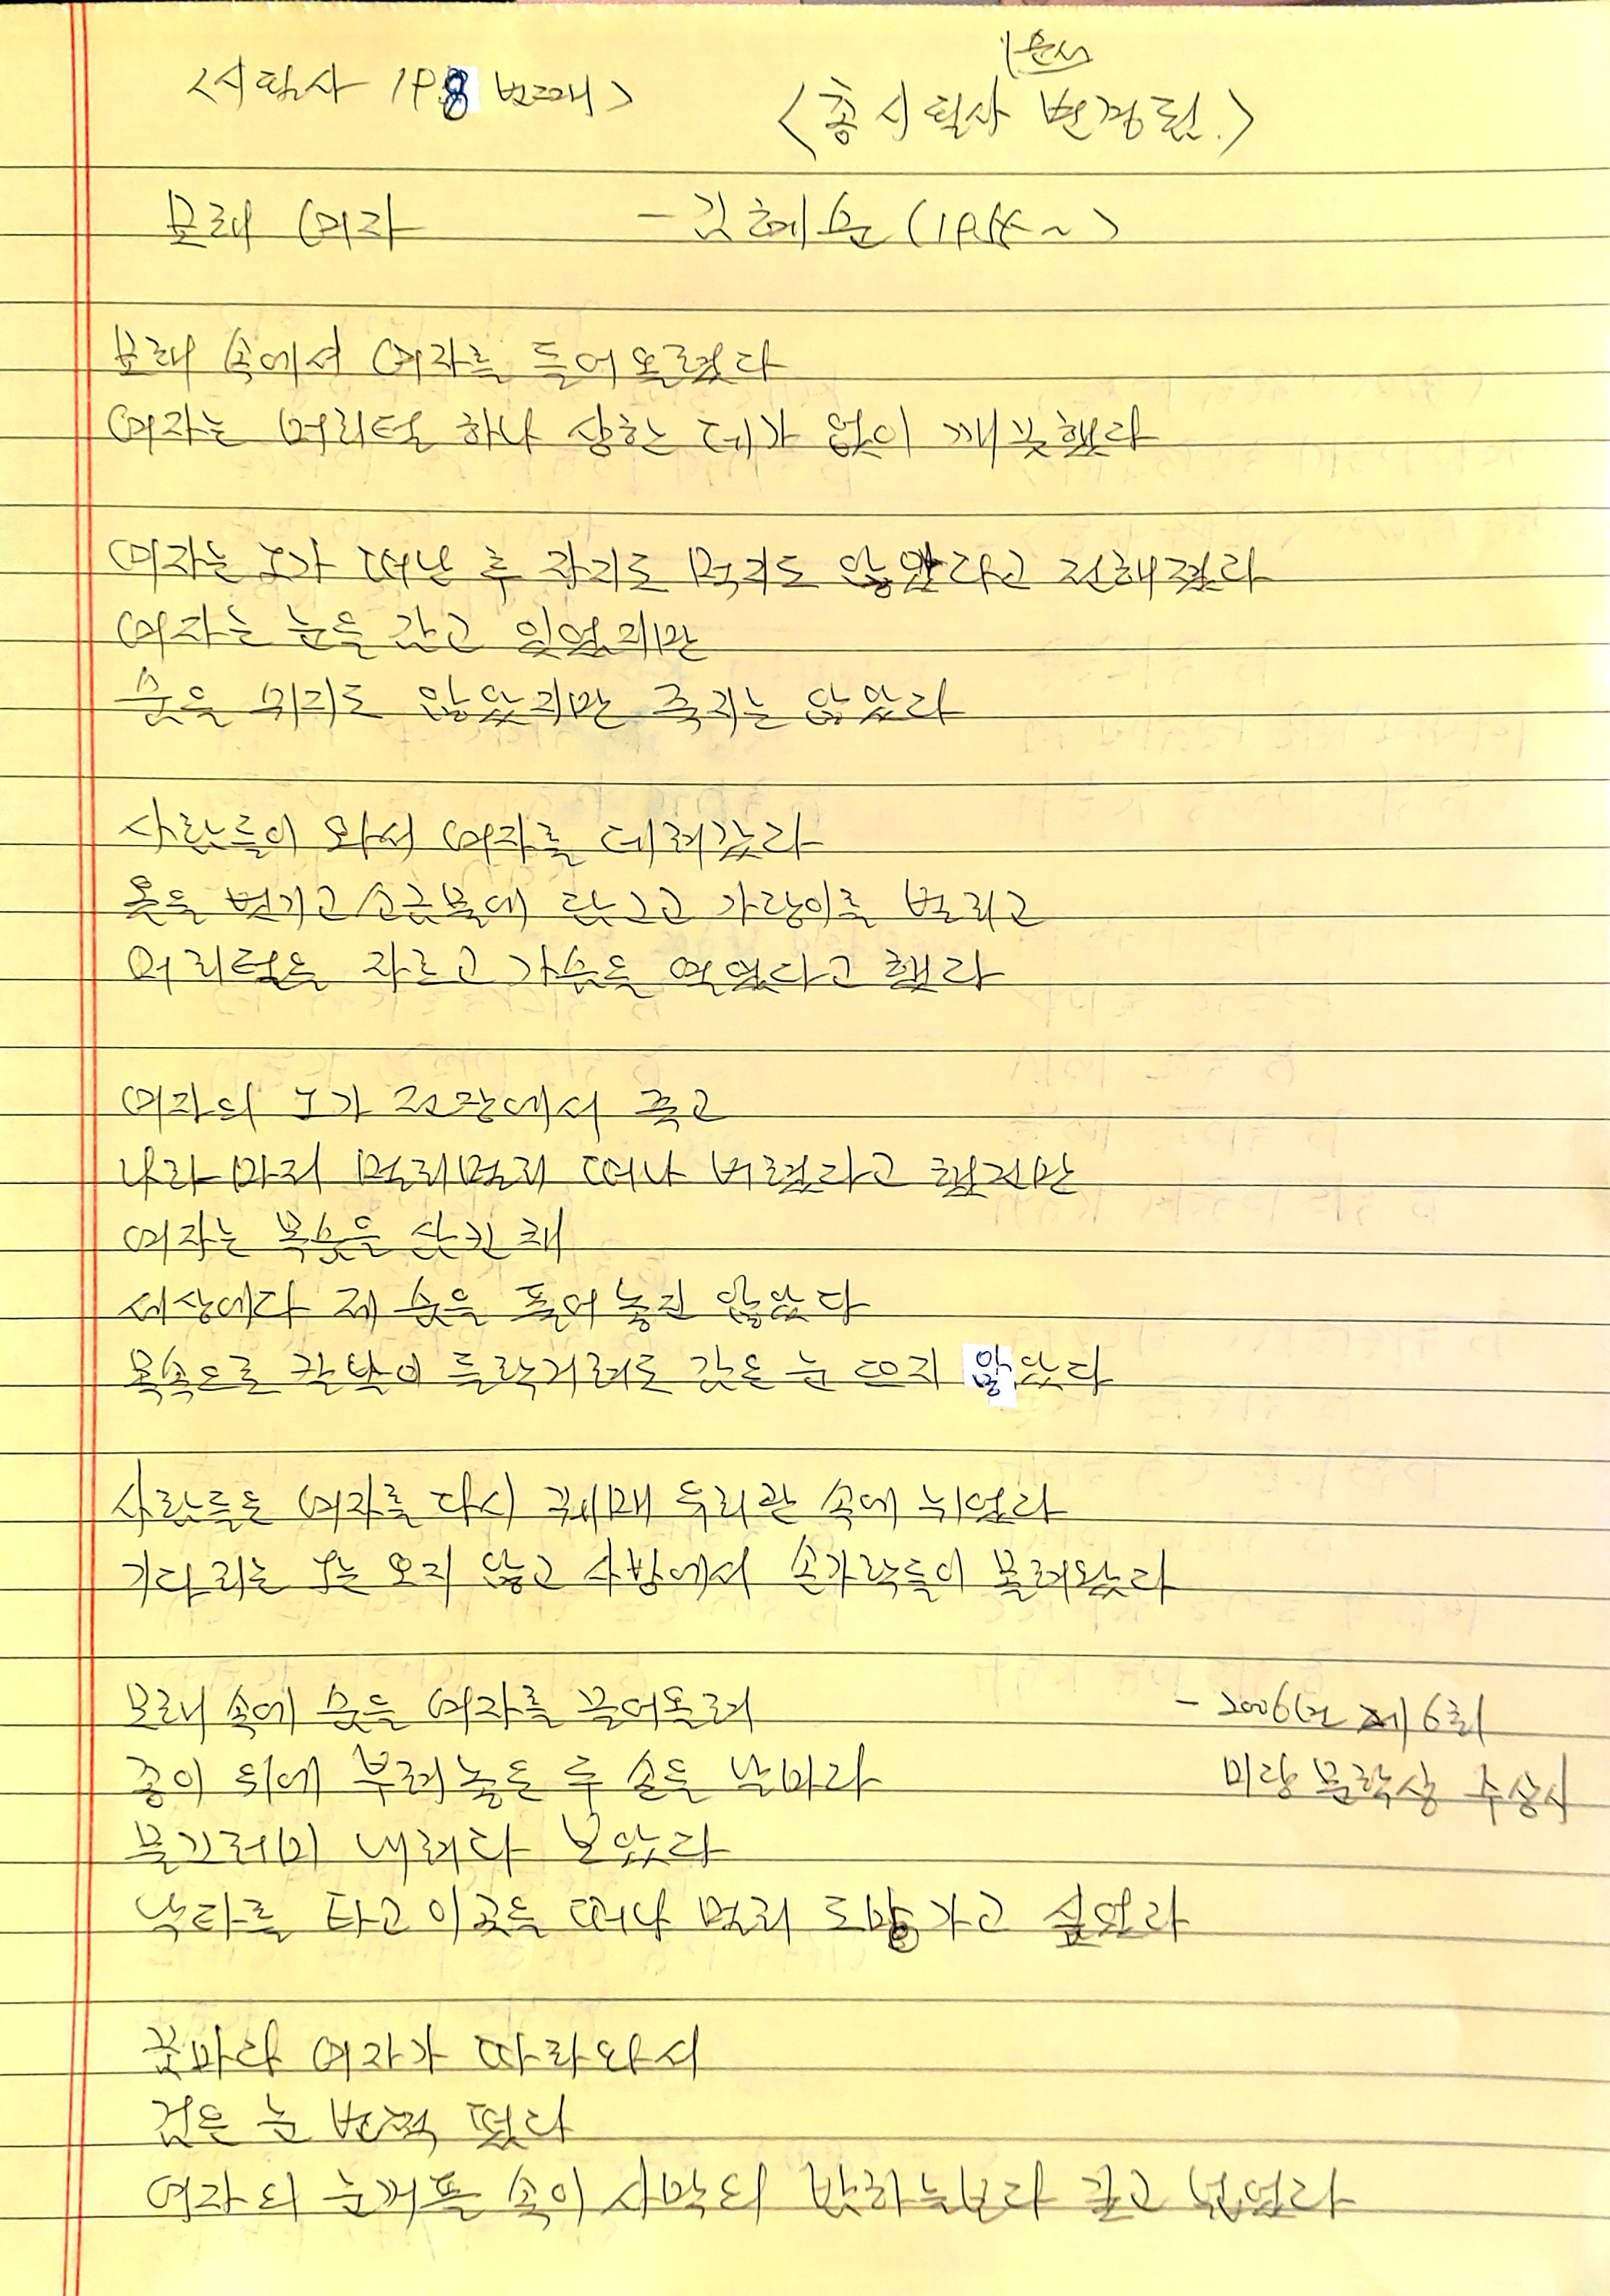 <시필사 198 번째>
<총 시필사 변경됨.>
모래 여자 - 김혜순 (1955~)
모래 속에서 여자를 들어올렸다
여자는 머리털 하나 상한 데가 없이 깨끗했다
여자는 그가 떠난 후 자지도 먹지도 않았다고 전해졌다
여자는 눈을 감고 있었지만
숨을 쉬지도 않았지만 죽지는 않았다
사람들이 와서 여자를 데려갔다
옷을 벗기고 소금물에 담그고 가랑이를 벌리고
머리털을 자르고 가슴을 열었다고 했다
여자의 그가 전장에서 죽고
나라마저 멀리멀리 떠나 버렸다고 했지만
여자는 목숨을 삼킨 채
세상에다 제 숨을 풀어놓진 않았다
몸속으로 칼날이 들락거려도 감은 눈 뜨지 않았다
사람들은 여자를 다시 꿰매 유리관 속에 뉘었다
기다리는 그는 오지 않고 사방에서 손가락들이 몰려왔다
모래 속에 숨은 여자를 끌어올려
- 2006년 제6회
종이 위에 부려놓은 두 손을 날마다
미당 문학상 수상시
물끄러미 내려다 보았다
낙타를 타고 이곳을 떠나 멀리 도망가고 싶었다
꿈마다 여자가 따라와서
검은 눈 번쩍 떴다
여자의 눈꺼풀 속이 사막의 밤하늘보다 깊고 넓었다